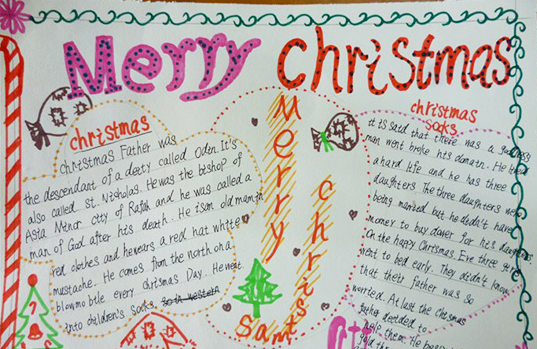 Merry christmas
christmas
Christmas Father was
the descendant of a deety called Odin. It's
also called St. Nisholas. He was the bishop of
Asta Menor city of Rafak and he was called a
man of God after his death. He is an old man in
red clothes and he wears a red hat white
mustache. He comes from the north on a
blowmobile every christmas Day. He went
into children's socks.
Merry
christmas
Santa
christmas
socks
It is said that there was a
man went broke his domatn. He lived
a hard life and he has three
daughters The three daughters were
being married but he dodn't have
money to buy dower for his daughters
On the happy Christmas Eve three girls
went to bed early. They didn't know
that theirs father was so
worried. At last the Christmas
father decided to
help them. He